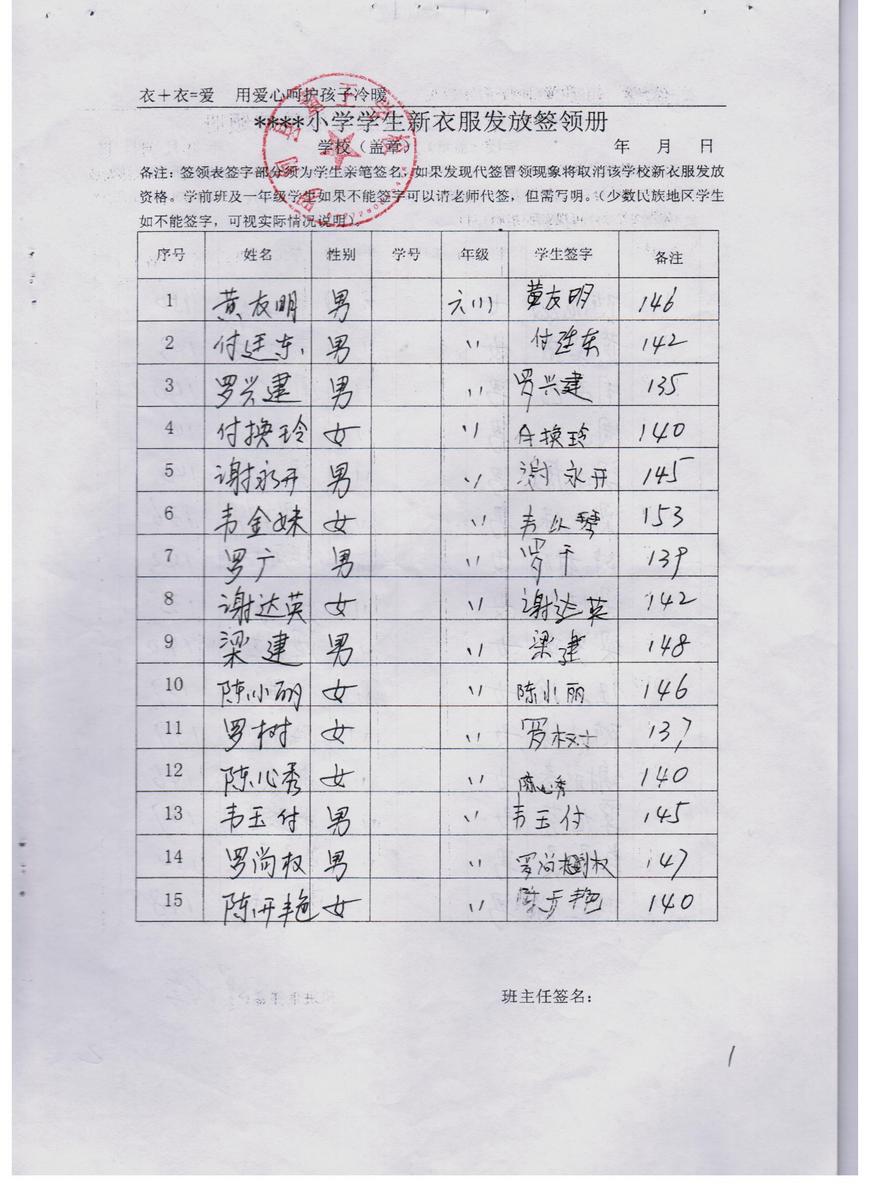 衣＋衣=爱 用爱心呵护孩子冷暖
****小学学生新衣服发放签领册
学校（盖章） 年 月 日
备注：签领表签字部分须为学生亲笔签名，如果发现代签冒领现象将取消该学校新衣服发放
资格。学前班及一年级学生如果不能签字可以请老师代签，但需写明。（少数民族地区学生
如不能签字，可视实际情况说明）。
序号 姓名 性别 学号 年级 学生签字 备注
1 黄友明 男 六(1) 黄友明 146
2 付廷东 男 〃 付廷东 142
3 罗兴建 男 〃 罗兴建 135
4 付换玲 女 〃 付换玲 140
5 谢永开 男 〃 谢永开 145
6 韦金妹 女 〃 韦 153
7 罗广 男 〃 罗 139
8 谢达英 女 〃 谢达英 142
9 梁建 男 〃 梁建 148
10 陈小丽 女 〃 陈小丽 146
11 罗树 女 〃 罗树 137
12 陈心秀 女 〃 陈心秀 140
13 韦玉付 男 〃 韦玉付 145
14 罗尚权 男 〃 罗尚权 147
15 陈开艳 女 〃 陈开艳 140
班主任签名：
1